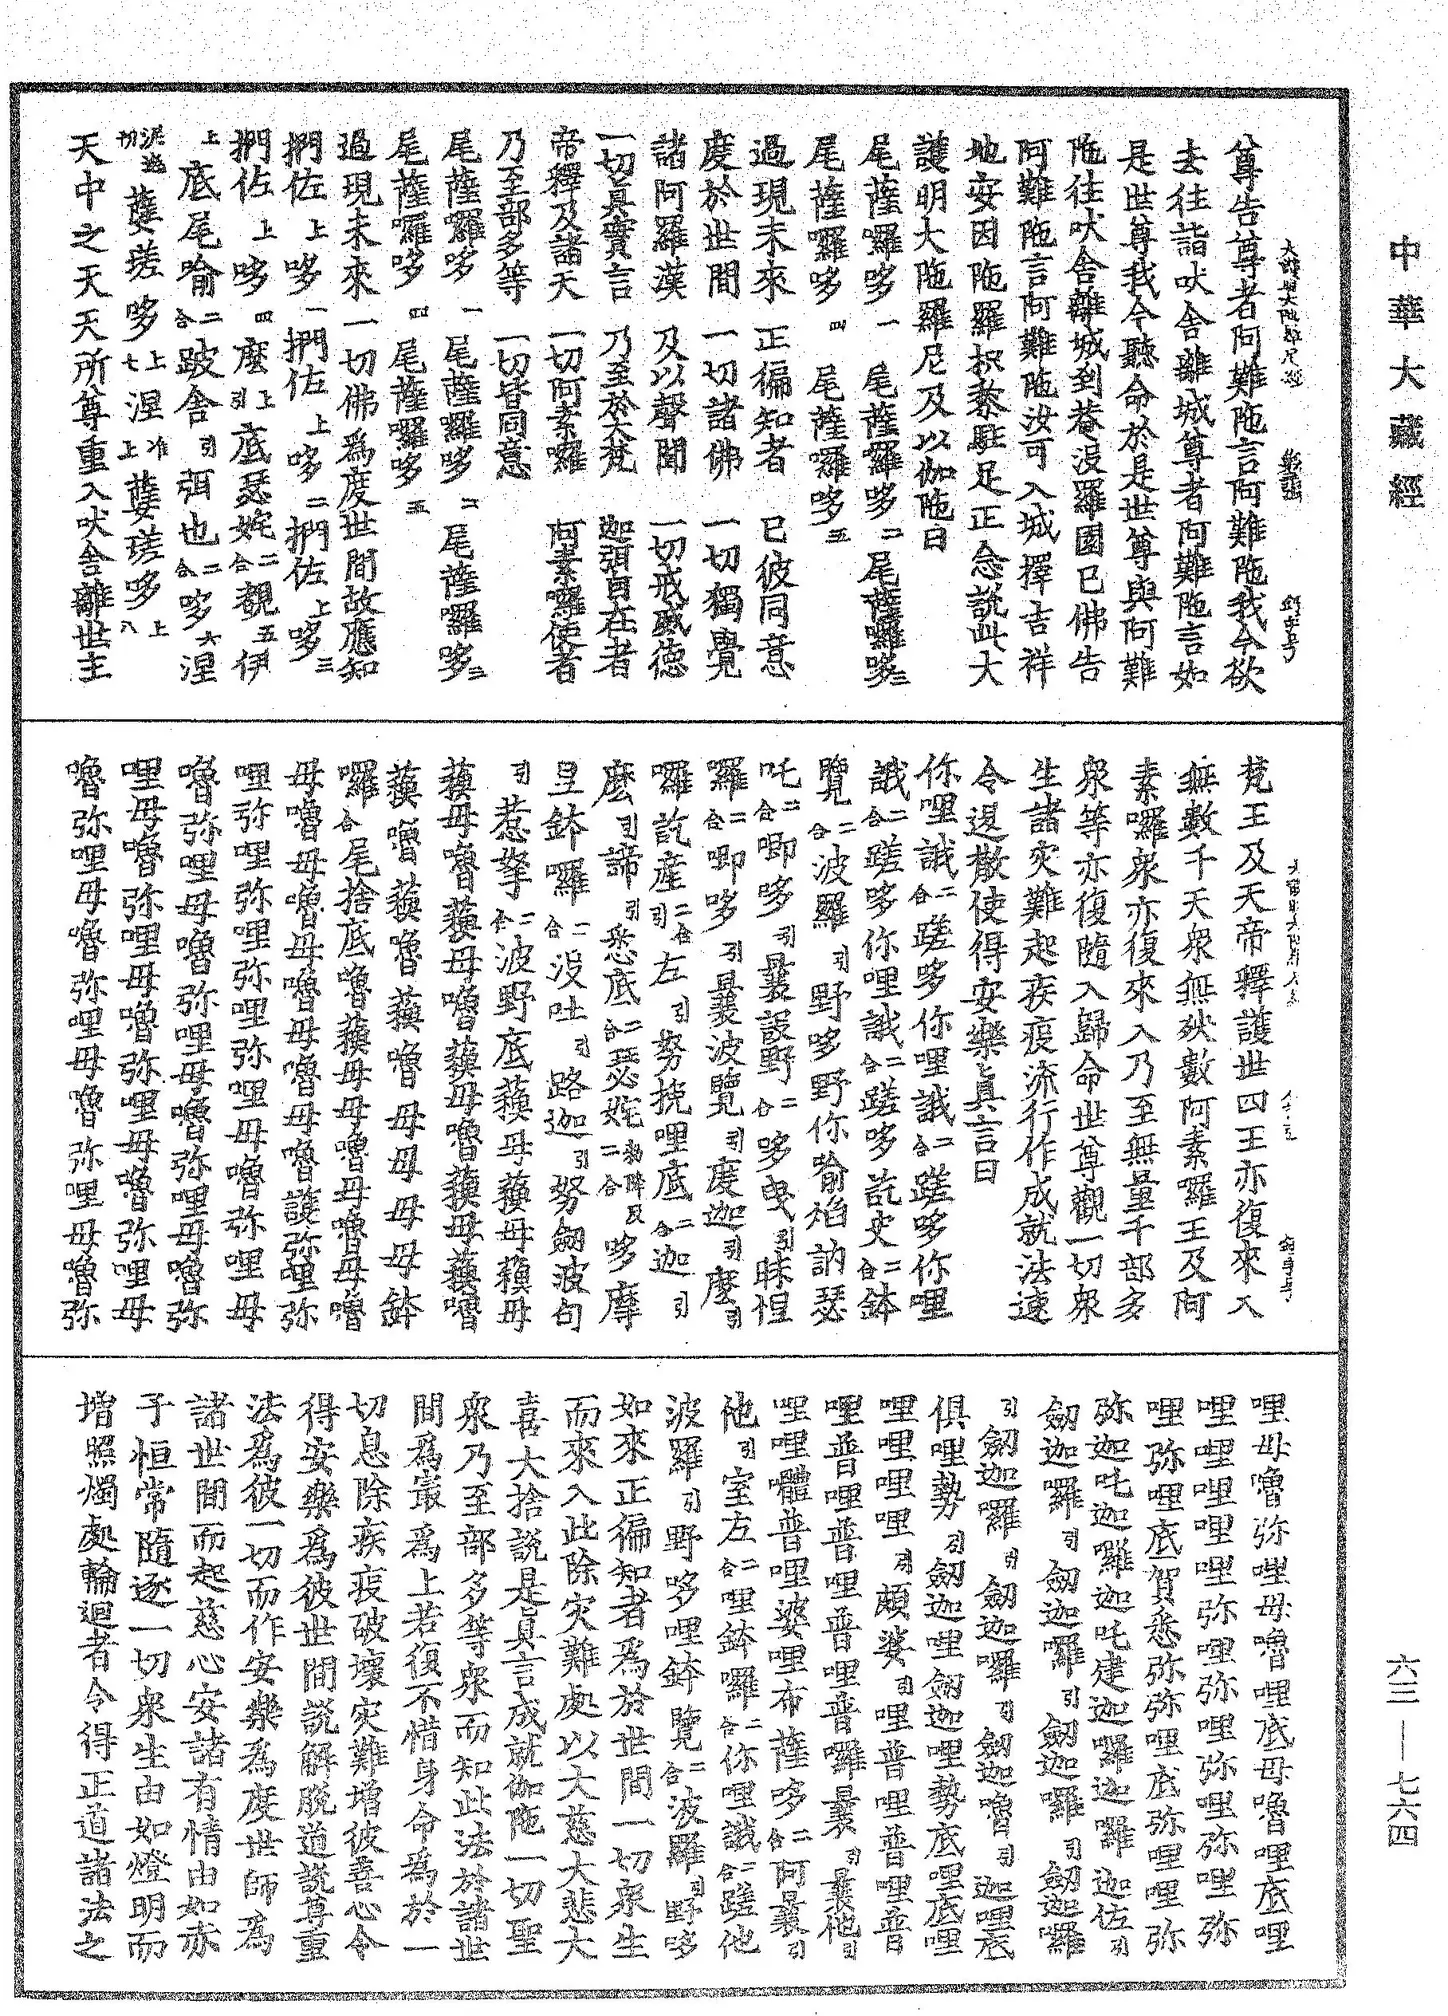 中華大藏經
尊告尊者阿難陁言阿難陁我今欲
去往詣吠舍離城尊者阿難陁言如
是世尊我今聽命於是世尊與阿難
陁往吠舍離城到菴没羅園已佛告
阿難陁言阿難陁汝可入城擇吉祥
地安因陁羅枳黎駐足正念說此大
護明大陁羅尼及以伽陁曰
尾薩囉哆一 尾薩囉哆二 尾薩囉哆三
尾薩囉哆四 尾薩囉哆五
過現未來 正徧知者 已彼同意
度於世間 一切諸佛 一切獨覺
諸阿羅漢 及以聲聞 一切戒威德
一切真實言 乃至於大梵 迦弭自在者
帝釋及諸天 一切阿素囉 阿素囉使者
乃至部多等 一切皆同意
尾薩囉哆一 尾薩囉哆二 尾薩囉哆三
尾薩囉哆四 尾薩囉哆五
過現未來一切佛爲度世間故應知
捫佐上哆一捫佐上哆二捫佐上哆三
捫佐上哆四麽引上底瑟姹二合覩五伊
上底尾喻二合跛舍引弭也二合哆六涅
切薩嗟哆上七涅 上薩嗟哆上八
天中之天天所尊重入吠舍離世主
梵王及天帝釋護世四王亦復來入
無數千天衆無央數阿素羅王及阿
素囉衆亦復來入乃至無量千部多
衆等亦復隨入歸命世尊觀一切衆
生諸灾難起疾疫流行作成就法速
令退散使得安樂真言曰
你哩誐二合蹉哆你哩誐二合蹉哆你哩
誐二合蹉哆你哩誐二合蹉哆訖史二合鉢
覽二合波羅引野哆野你喻焰訥瑟
吒二合唧哆引曩設野二合哆曳引昧怛
羅二合唧哆引曩波覽引度迦引麽引
囉訖産二合引左引努挽哩底二合迦引
麽引諦引悉底二合瑟姹二合 哆摩
旦鉢囉二合没吐引路迦引努劒波句
引惹拏二合波野底蘋母蘋母蘋母
蘋母嚕蘋母嚕蘋母嚕蘋母蘋嚕
蘋嚕蘋嚕蘋嚕母母母母鉢
囉合尾捨底嚕蘋母母嚕母嚕母嚕
母嚕母嚕母嚕母嚕母嚕護弥哩弥
哩弥哩弥哩弥哩弥哩母嚕弥哩母
嚕弥哩母嚕弥哩母嚕弥哩母嚕弥
哩母嚕弥哩母嚕弥哩母嚕弥哩母
嚕弥哩母嚕弥哩母嚕弥哩母嚕弥
哩母嚕弥哩母嚕哩底母嚕哩底哩
哩哩哩哩哩弥哩弥哩弥哩弥哩弥
哩弥哩底賀悉弥弥哩底弥哩哩弥
弥迦吒迦囉迦吒建迦囉迦囉迦佐引
劒迦囉引劒迦囉引劒迦囉引劒迦囉
引劒迦囉引劒迦囉引劒迦嚕引迦哩底
俱哩勢引劒迦哩劒迦哩勢底哩底哩
哩哩哩哩引頗婆引哩普哩普哩哩普
哩普哩普哩普哩普囉曩引曩他引
哩哩體普哩婆哩布薩哆二合阿曩引
他引室左二合哩鉢囉二合你哩誐二合蹉他
波羅引野哆哩鉢覽二合波羅引野哆
如來正徧知者爲於世間一切衆生
而來入此除灾難處以大慈大悲大
喜大捨說是真言成就伽陁一切聖
衆乃至部多等衆而知此法於諸世
間爲最爲上若復不惜身命爲於一
切息除疾疫破壞灾難增彼善心令
得安樂爲彼世間說解脱道說尊重
法爲彼一切而作安樂爲度世師爲
諸世間而起慈心安諸有情由如赤
子恒常隨逐一切衆生由如燈明而
增照燭處輪迴者令得正道諸法之
六三—七六四